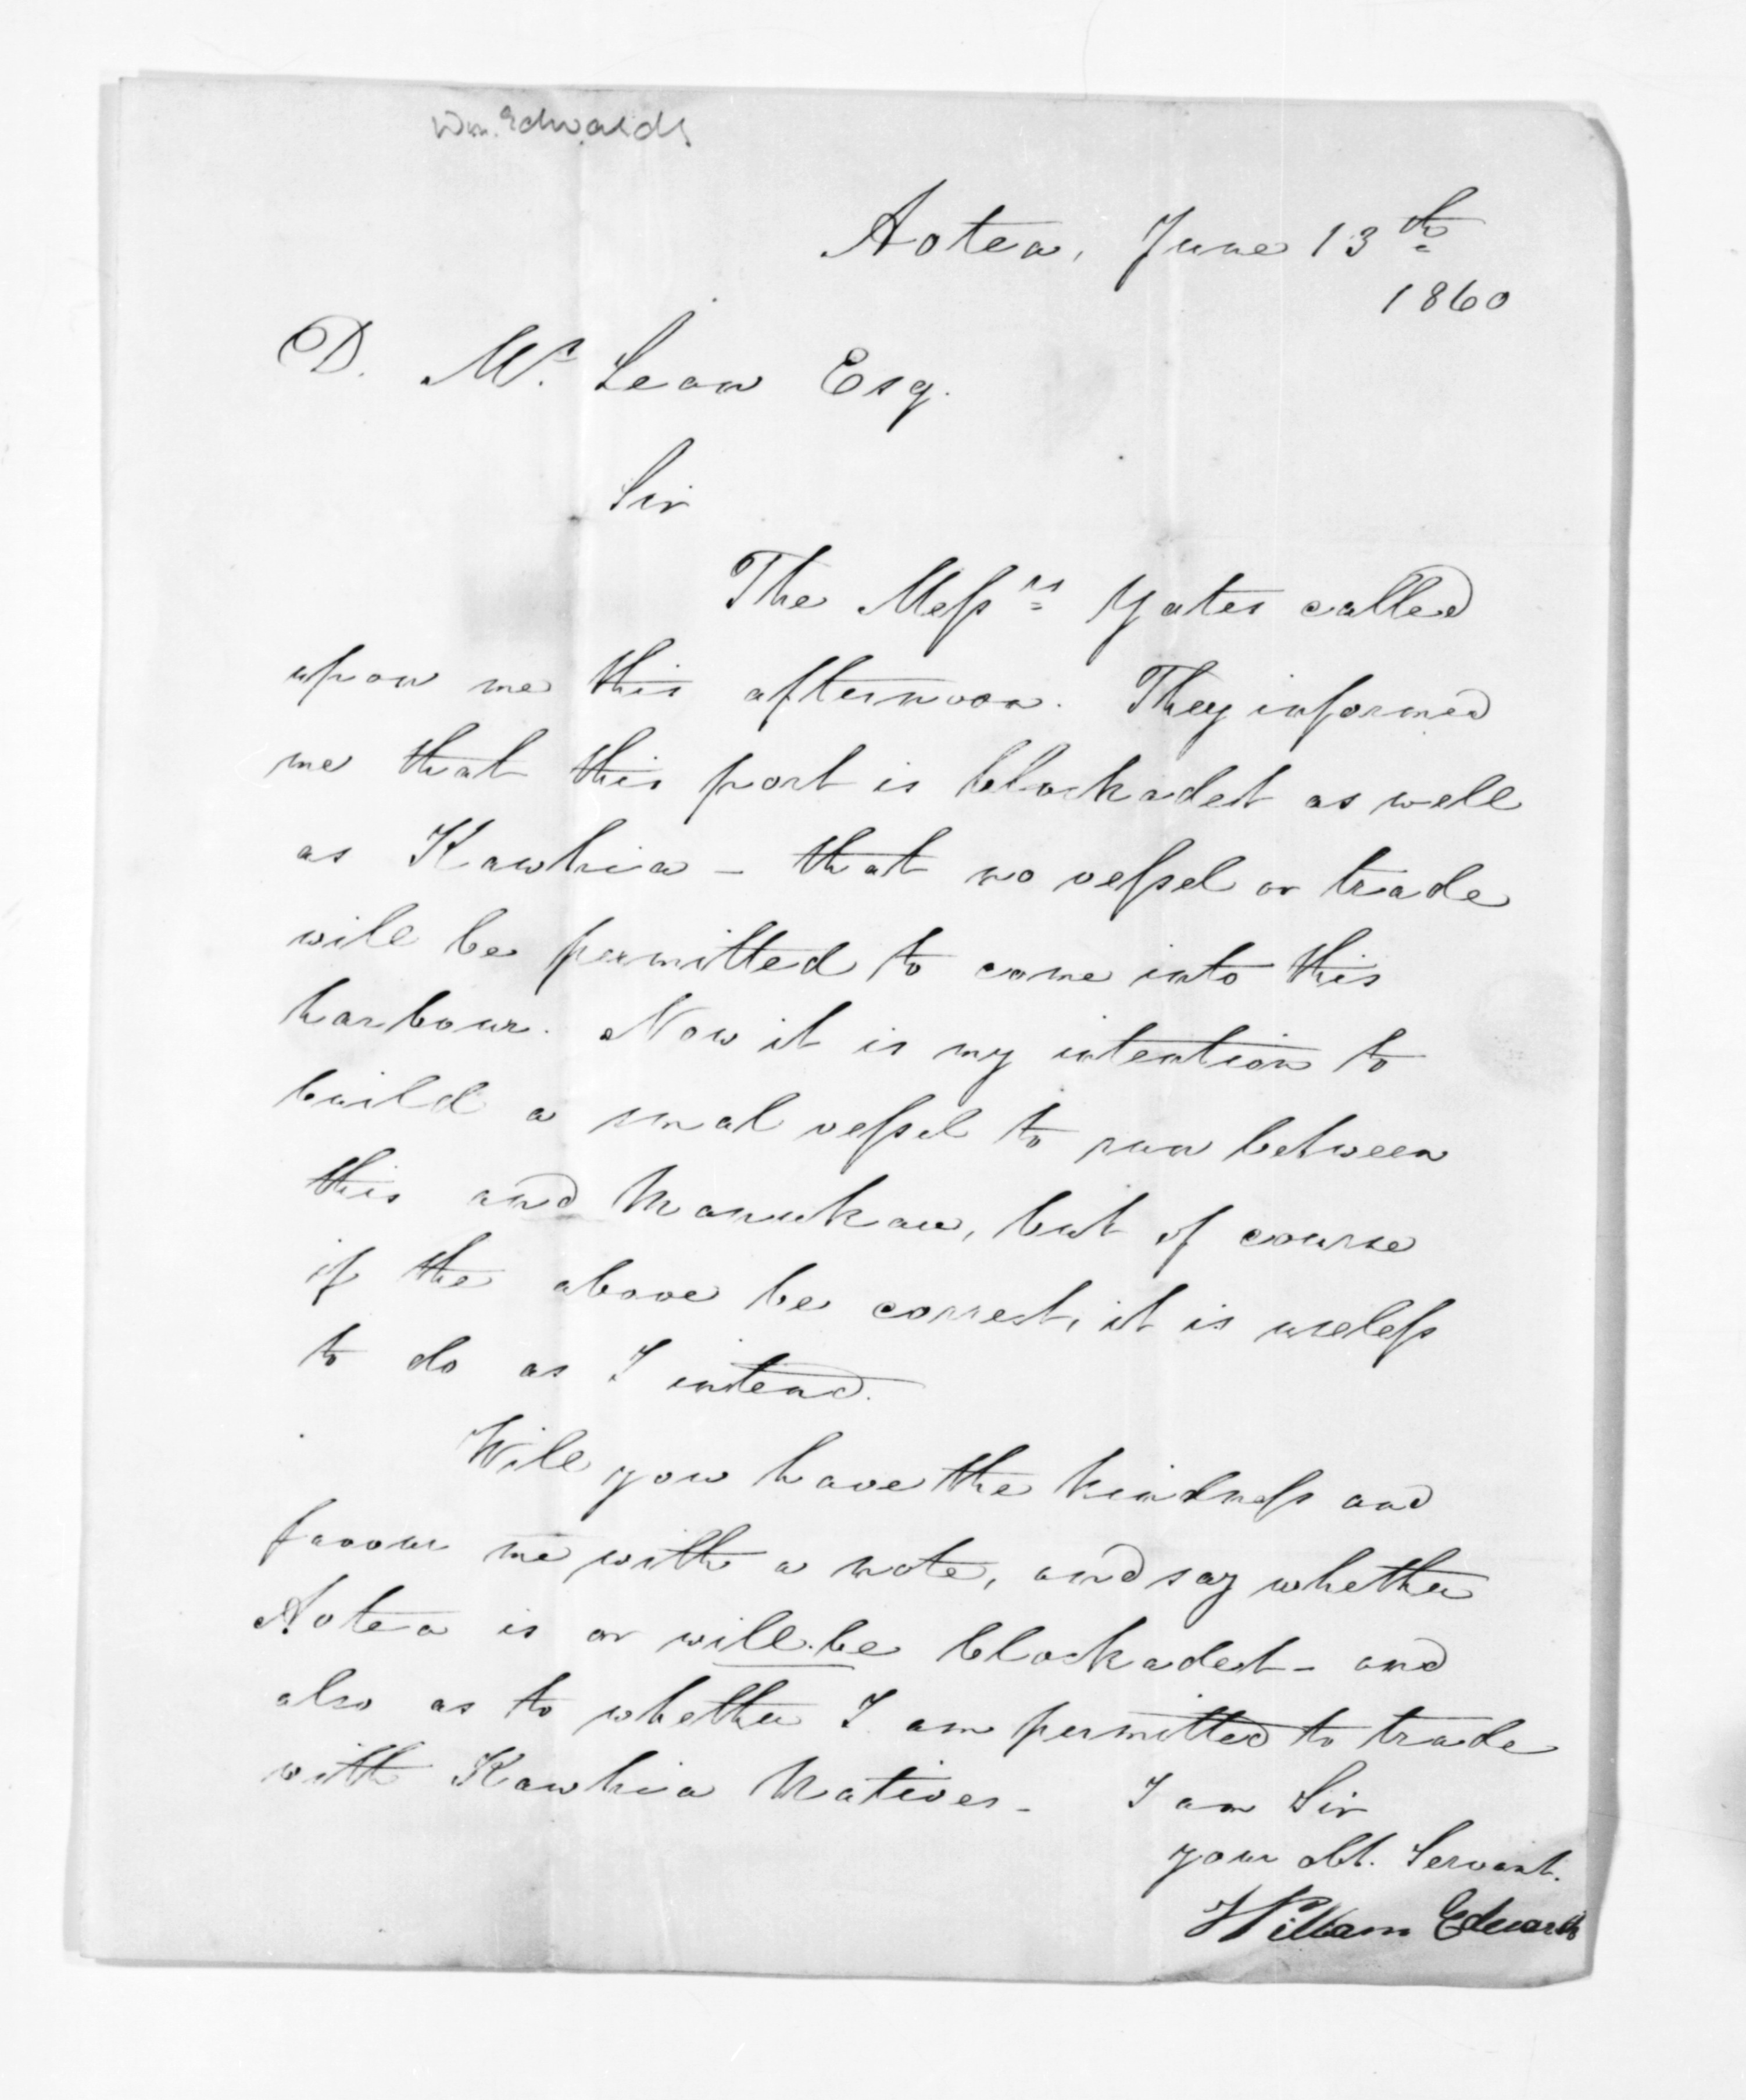 Wm. Edwards
Aotea, June 13th
1860
D. Mc. Lean Esq.
Sir
The Messrs Yates called
upon me this afternoon. They informed
me that this port is blockadedt as well
as Kawhia - that no vessel or trade
will be permitted to come into this
harbour. Now it is my intention to
build a smal vessel to run between
this and Manukau, but of course
if the above be correct, it is useless
to do as I intend.
Will you have the kindness and
favour me with a note, and say whether
Aotea is or will be blockadedt - and
also as to whether I am permitted to trade
with Kawhia Natives - I am Sir
your obt. Servant.
William Edwards